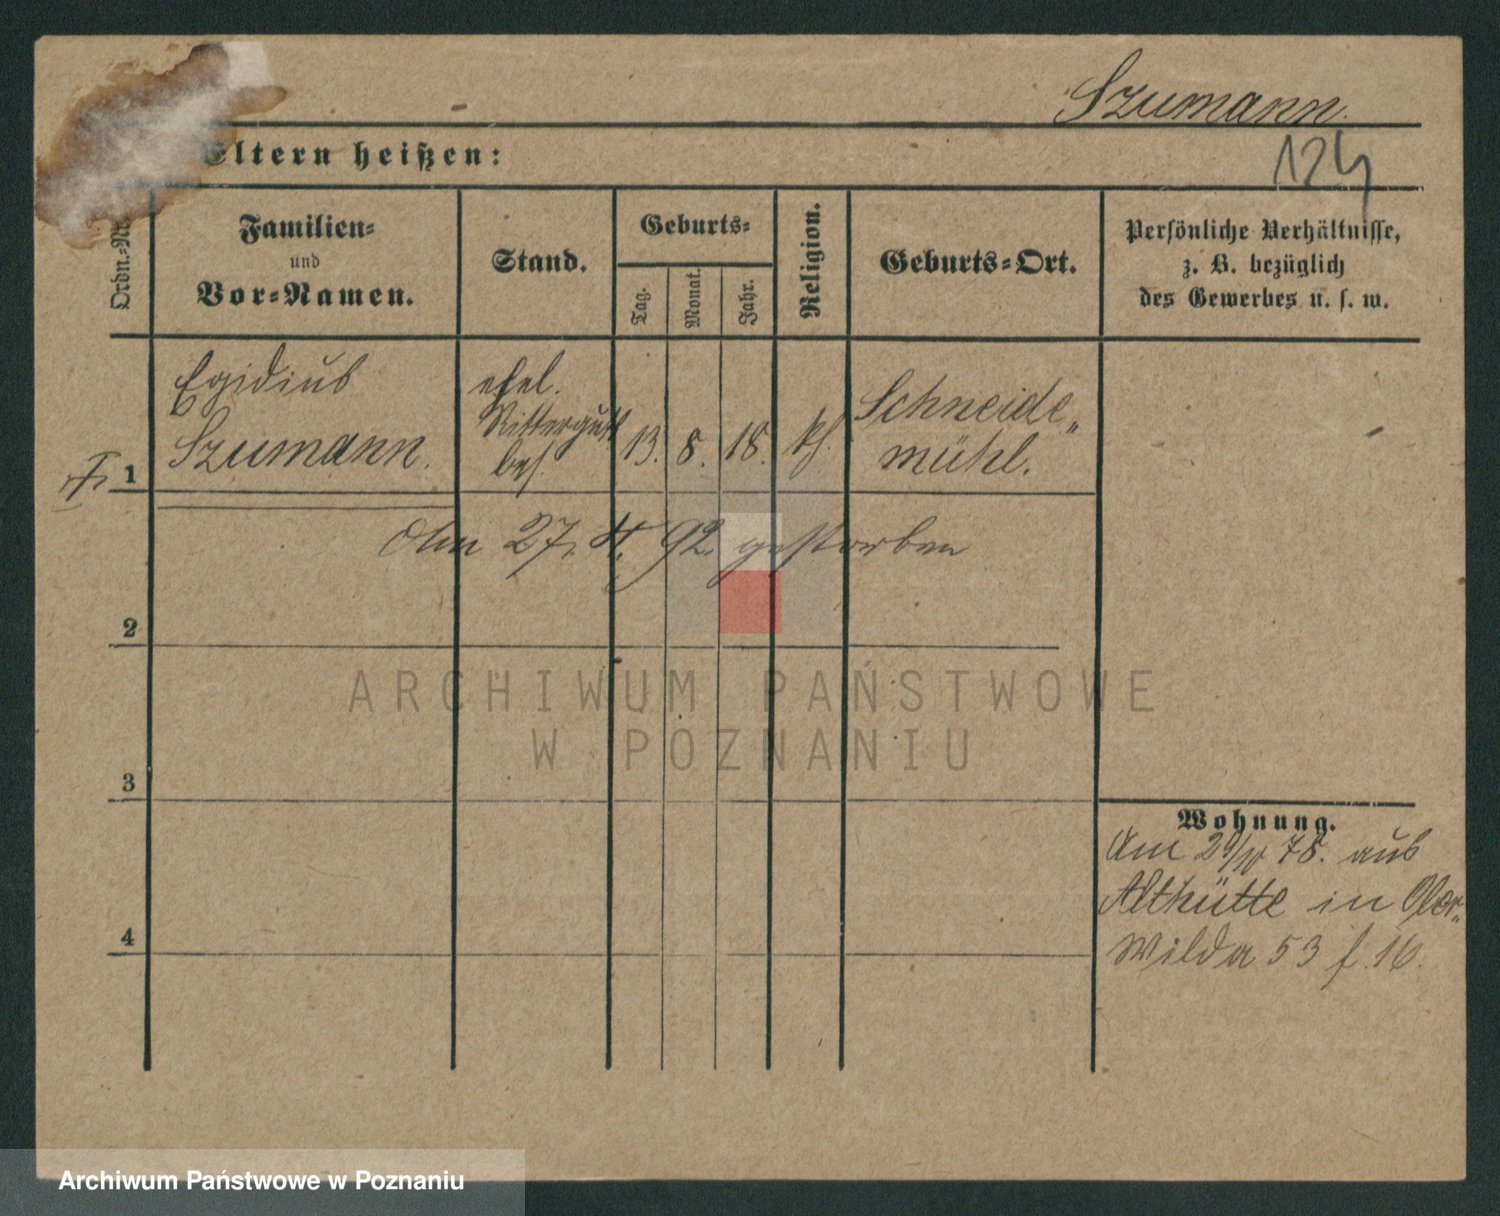 Szumann.
124
Eltern heißen:
Ordn.-Nr.
Familien-
und
Vor-Namen.
Stand.
Geburts-
Tag.
Monat.
Jahr.
Religion.
Geburts-Ort.
Persönliche Verhältnisse,
z. B. bezüglich
des Gewerbes u. s. w.
1
Egidius
Szumann.
ehel.
Ritterguts
bes.
13.
8.
18.
kh.
Schneide-
mühl.
Am 27. 4. 92. gestorben
2
3
4
Wohnung.
Am 29/ 78. aus
Althütte in Ober-
Wilda 53 f. 16.
ARCHIWUM PAŃSTWOWE
W POZNANIU
Archiwum Państwowe w Poznaniu